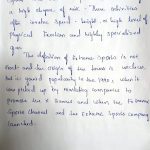 a high degree of risk. These activities
often involve speed, height, a high level of
physical exertion and highly specialized
gear.
The definition of Extreme Sports is not
exact and the origin of the terms is unclear,
but it gained popularity in the 1990s, when it
was picked up by marketing companies to
promote the X Games and when the Extreme
Sports channel and the Extreme Sports company
launched.